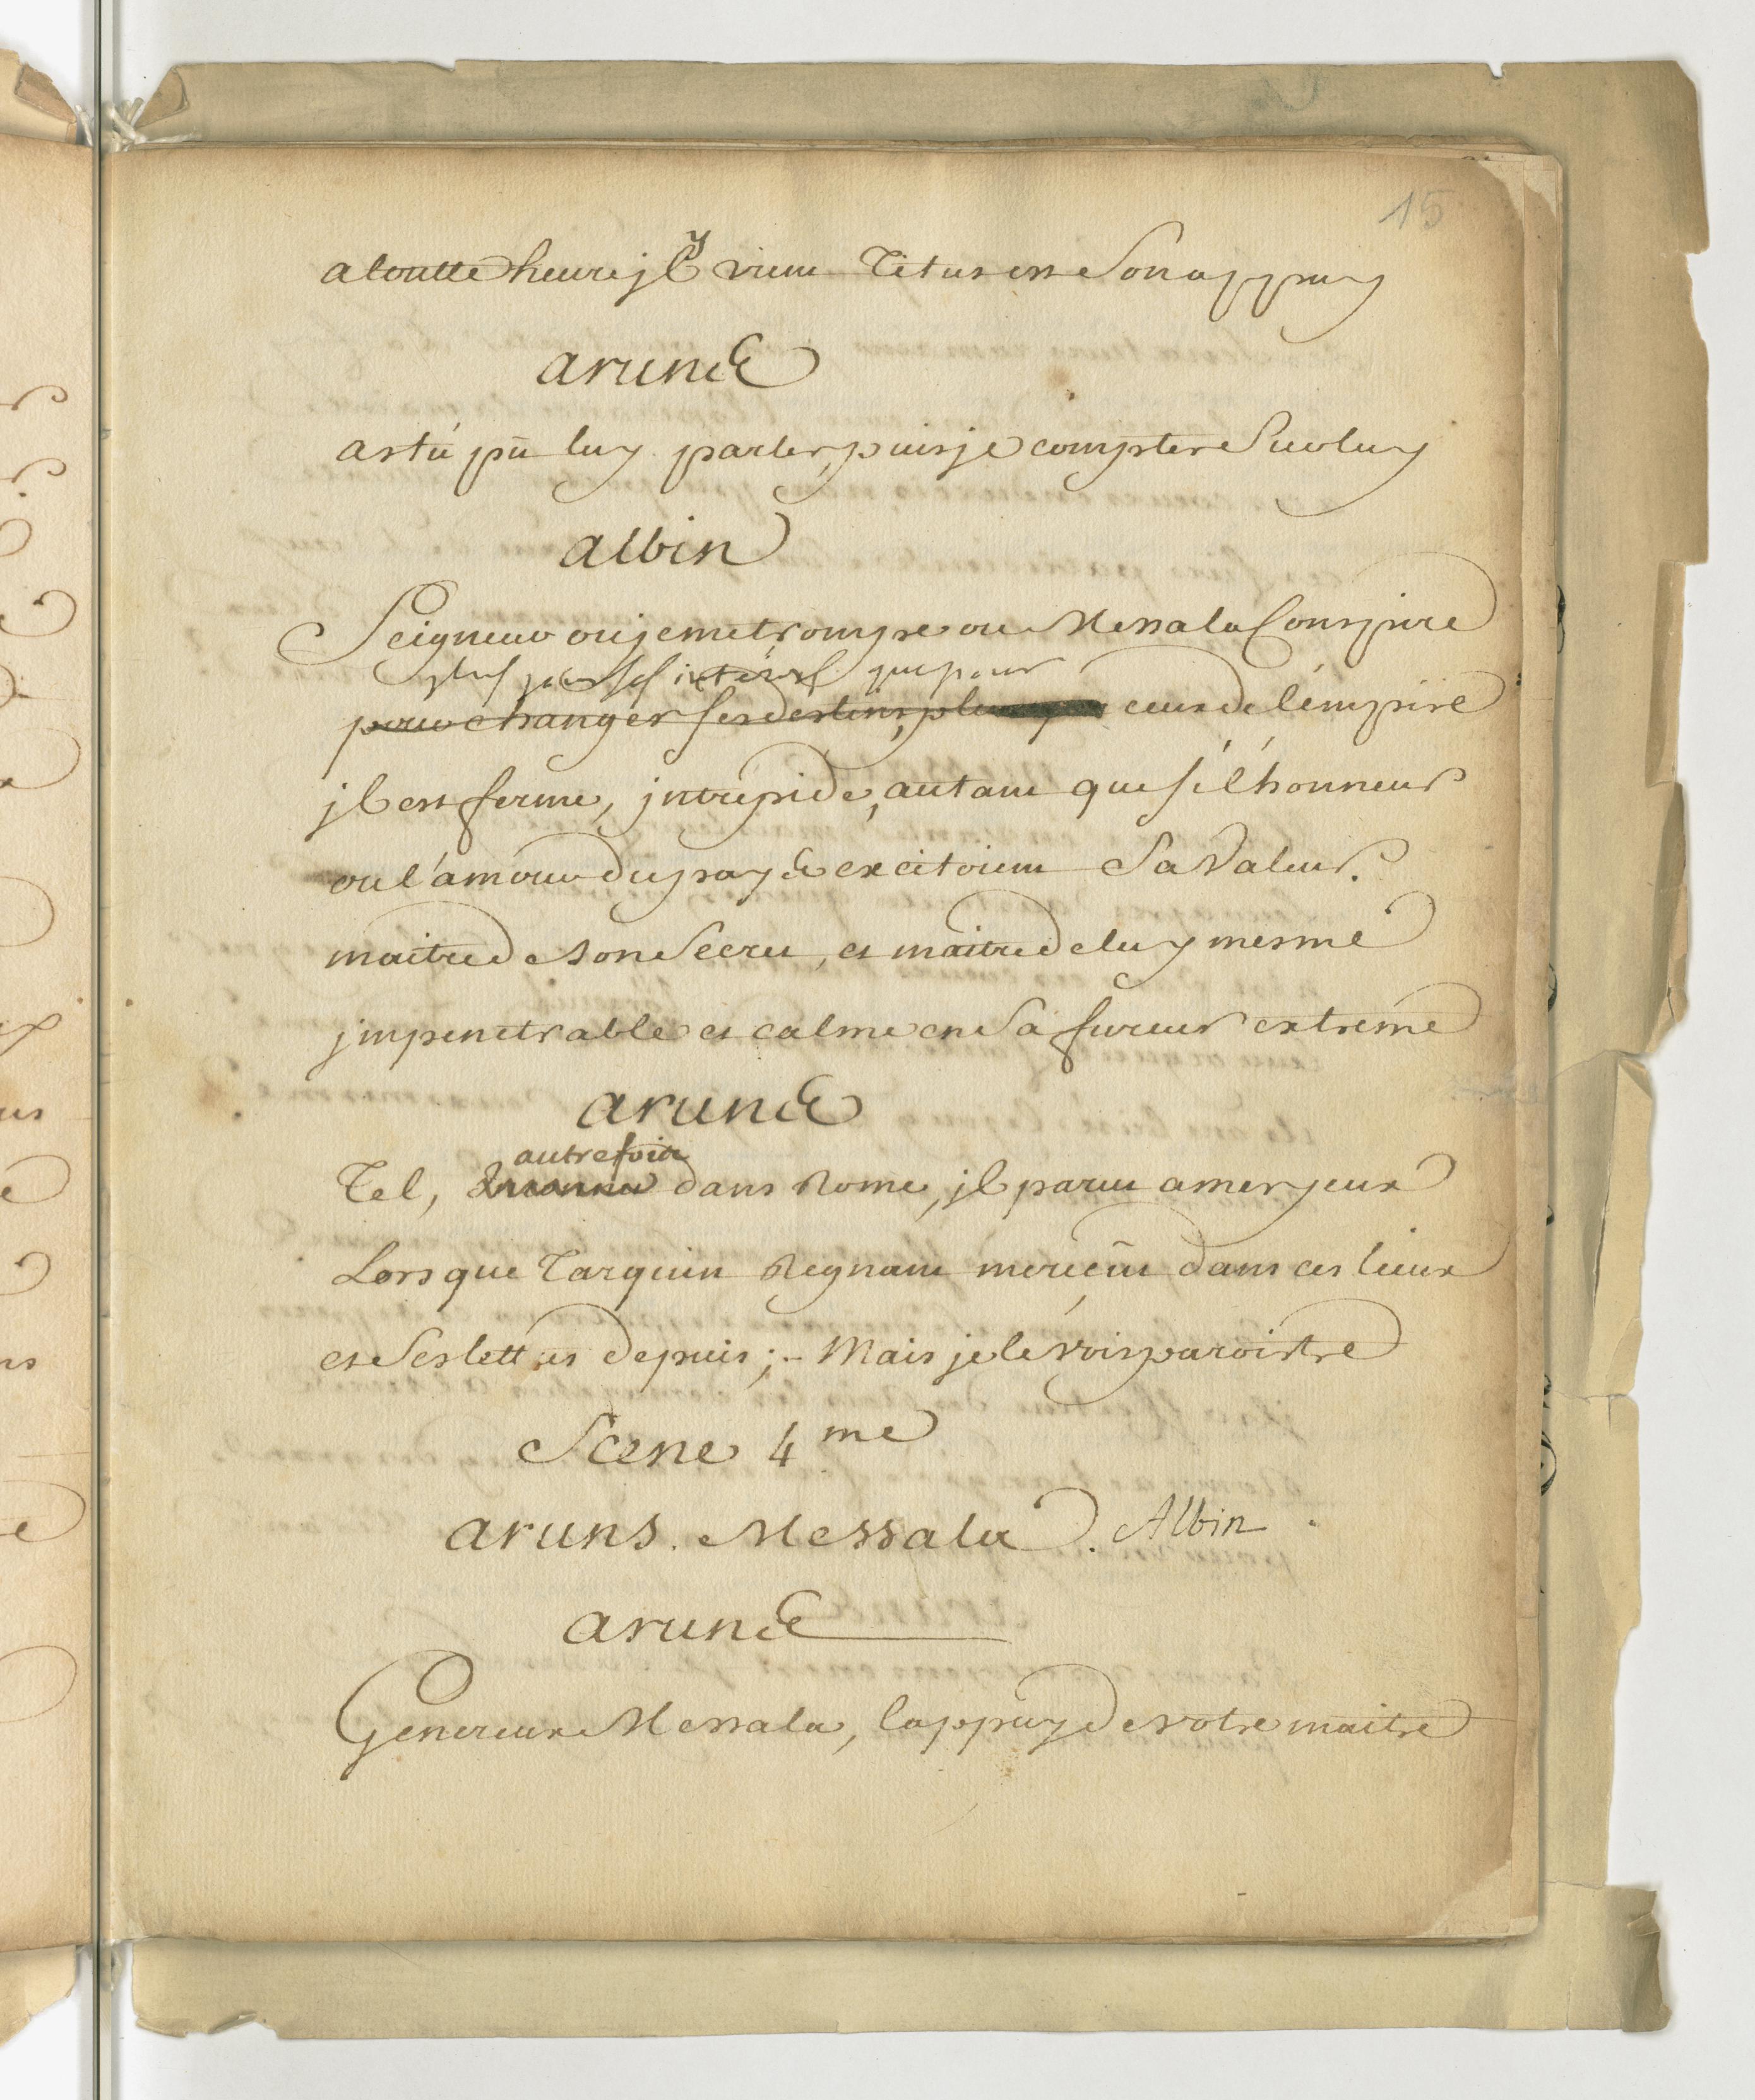 15
a toutte heure jl y vient Titus est son appuy
aruns
as tú pû luy parler, puis je compter sur luy
albin
Seigneur ou je me trompe ou Messala Conspire
plus pour ses interests que pour
pour changer ses destins, plus ceux de l'émpire
jl est ferme, jntrepide, autant que si l'honneur
ou l'amour du pays excitoient sa valeur.
maitre de son secret, et maitre de luy mesme
jmpenetrable et calme en sa fureur extreme
aruns
autrefois
Tel, Inconnu dans Rome, jl parut a mes yeux
Lorsque Tarquin Regnant me reçût dans ces lieux
et ses lettres depuis ; - Mais je le vois paroistre
Scene 4me
aruns. Messala. Albin
aruns
Genereux Messala, l'appuy de votre maitre